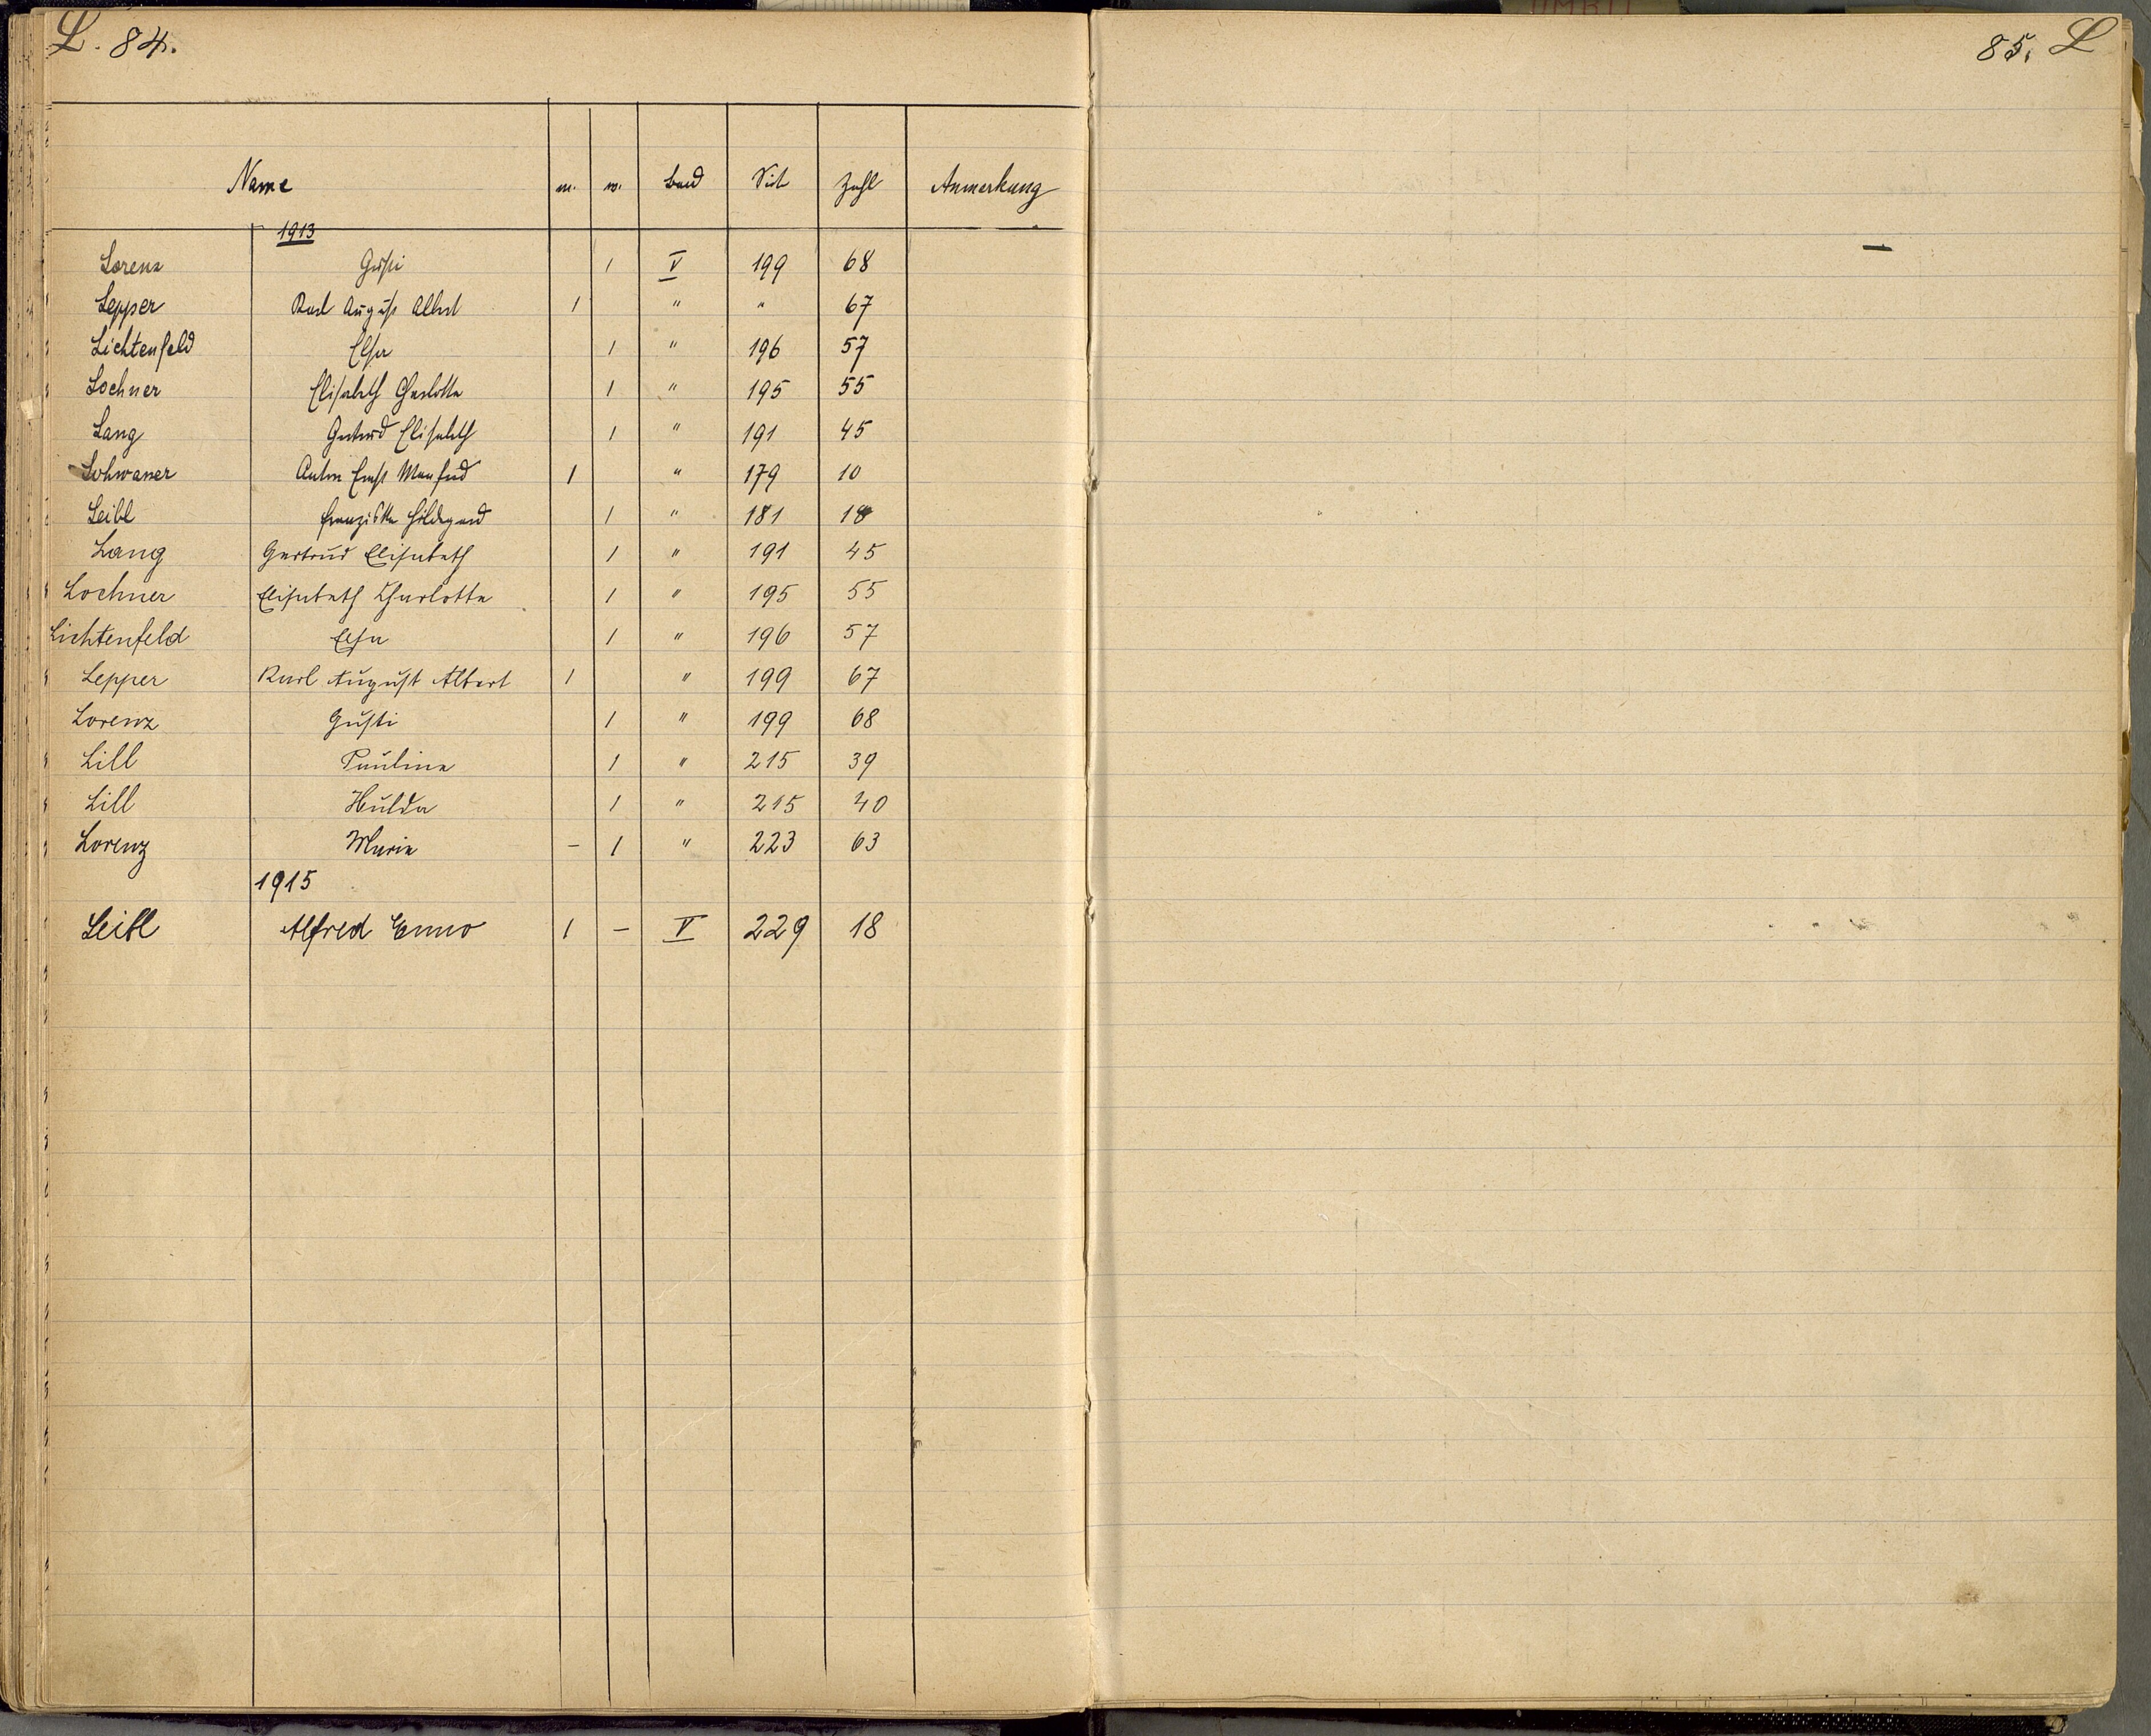 L. 84.
Name m. w. Band Seite Zahl Anmerkung
1913
Lorenz Gusti 1 V 199 68
Lepper Karl August Albert 1 " " 67
Lichtenfeld Elsa 1 " 196 57
Lochner Elisabeth Charlotte 1 " 195 55
Lang Gertrud Elisabeth 1 " 191 45
Lohwaner Anton Ernst Manfred 1 " 179 10
Leibl Franziska Hildegard 1 " 181 18
Lang Gertrud Elisabeth 1 " 191 45
Lochner Elisabeth Charlotte 1 " 195 55
Lichtenfeld Elsa 1 " 196 57
Lepper Karl August Albert 1 " 199 67
Lorenz Gusti 1 " 199 68
Lill Pauline 1 " 215 39
Lill Hulda 1 " 215 40
Lorenz Marie - 1 " 223 63
1915
Leibl Alfred Enno 1 - V 229 18
85. L